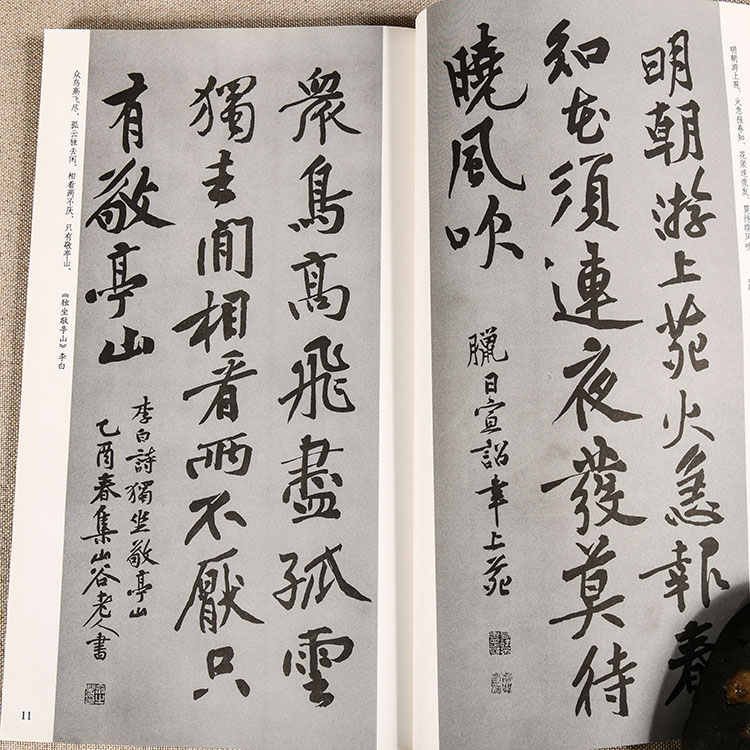 明朝游上苑，火急报春知，花须连夜发，莫待晓风吹
明朝游上苑火急報春
知花須連夜發莫待
曉風吹
臘日宣詔幸上苑
衆鳥高飛盡孤雲
獨去閒相看兩不厭只
有敬亭山
李白詩獨坐敬亭山
乙酉春集山谷老人書
众鸟高飞尽，孤云独去闲，相看两不厌，只有敬亭山。
《独坐敬亭山》李白
11